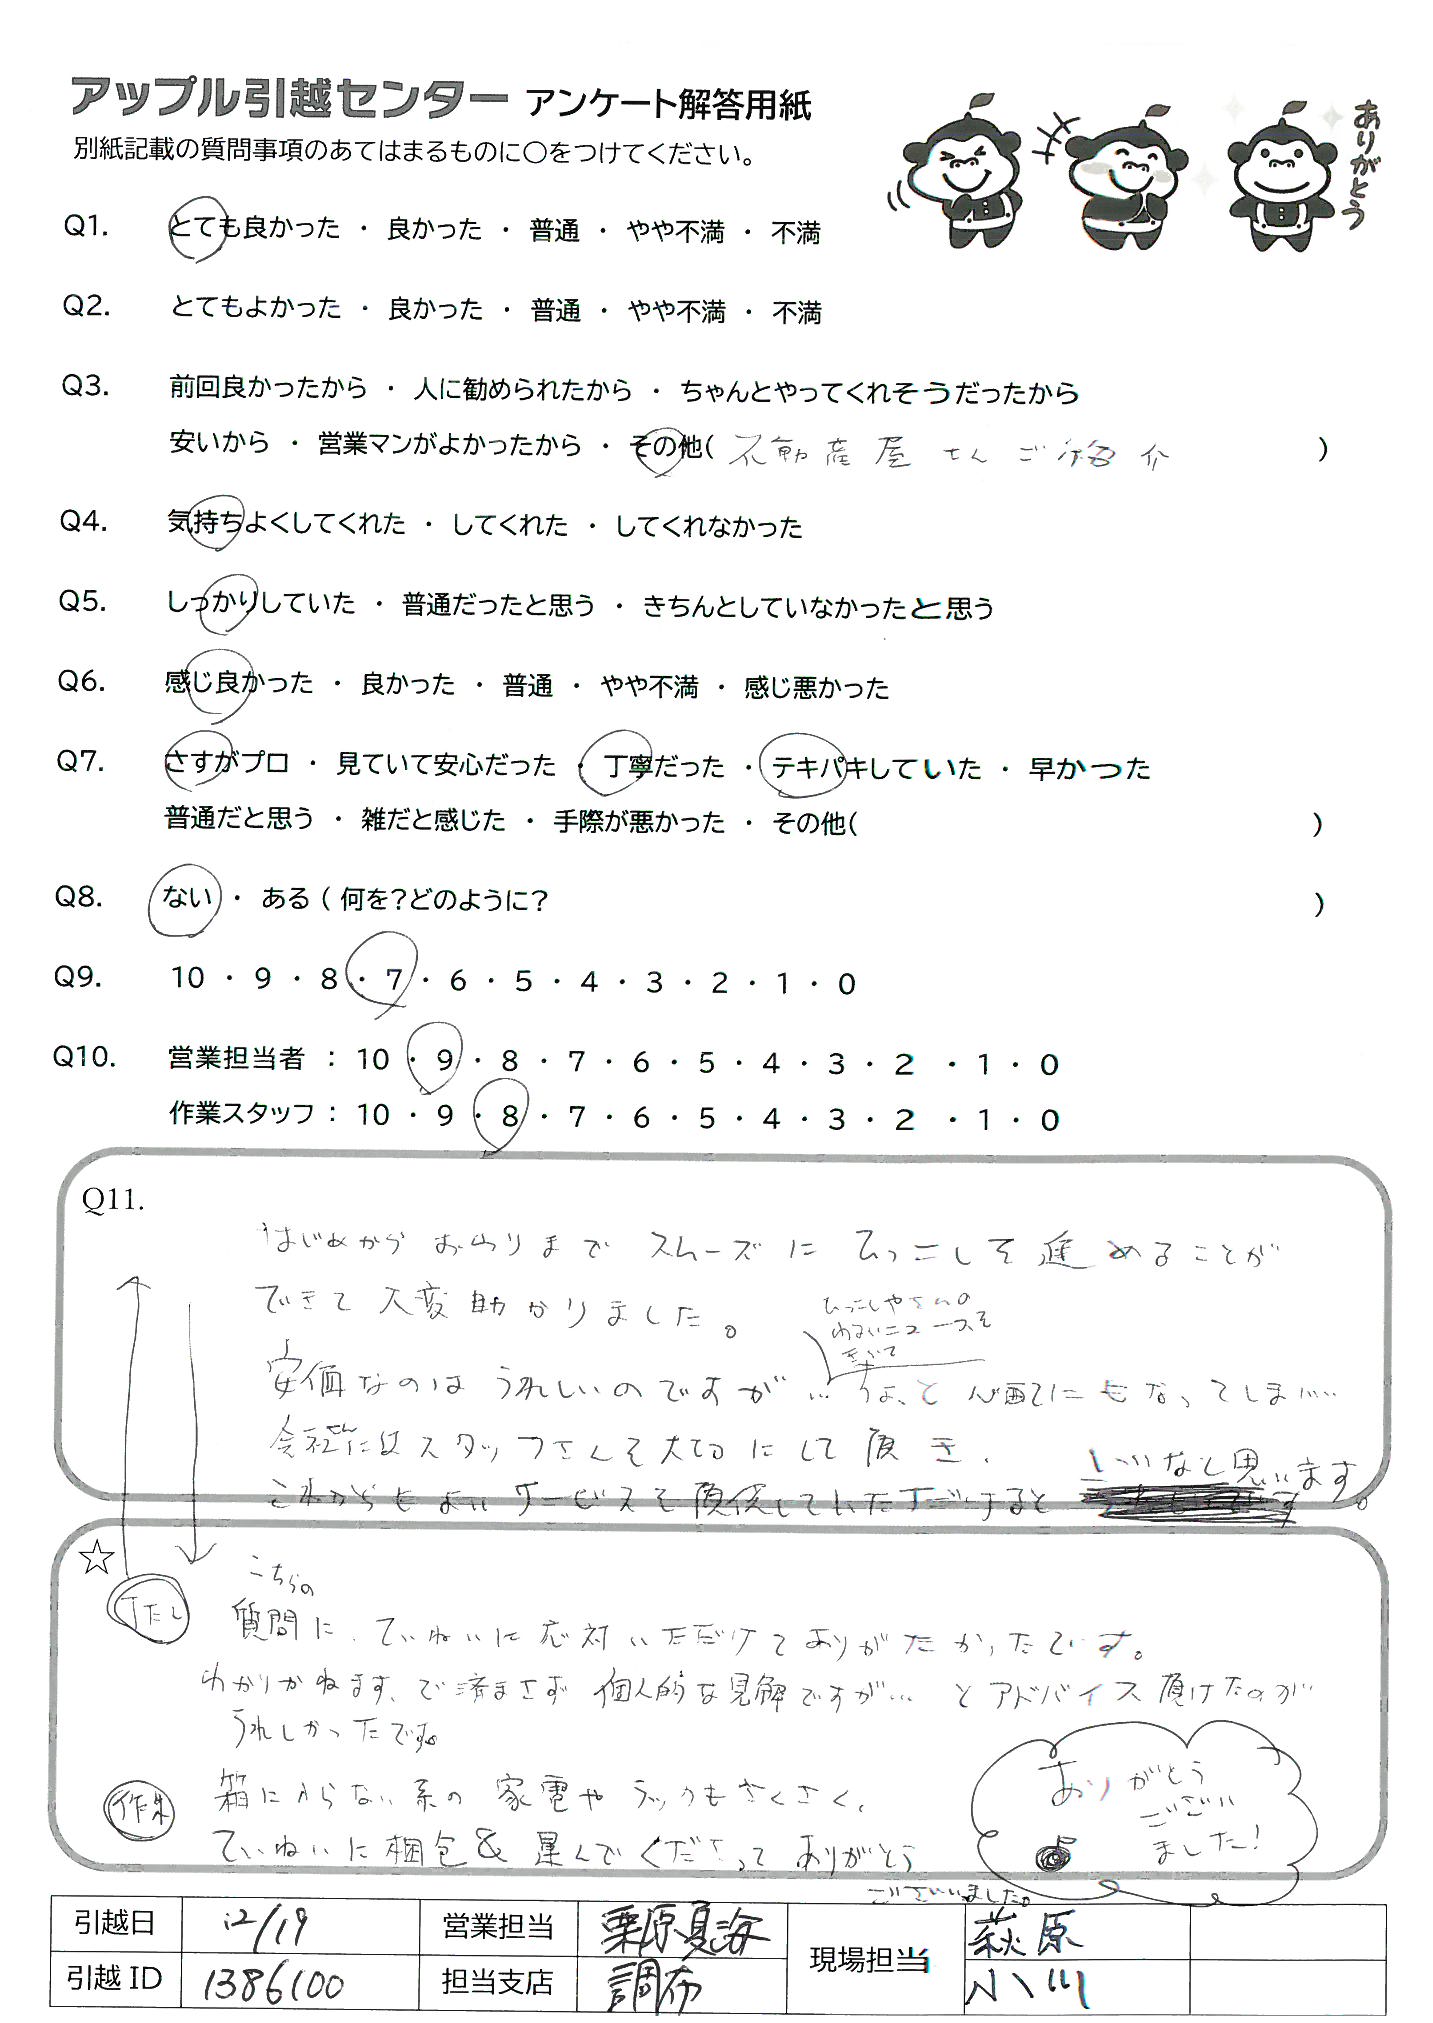 アップル引越センター アンケート解答用紙
ありがとう
別紙記載の質問事項のあてはまるものに○をつけてください。
Q1. とても良かった ・ 良かった ・ 普通 ・ やや不満 ・ 不満
Q2. とてもよかった ・ 良かった ・ 普通 ・ やや不満 ・ 不満
Q3. 前回良かったから ・ 人に勧められたから ・ ちゃんとやってくれそうだったから
安いから ・ 営業マンがよかったから ・ その他( 不動産屋さんご紹介 )
Q4. 気持ちよくしてくれた ・ してくれた ・ してくれなかった
Q5. しっかりしていた ・ 普通だったと思う ・ きちんとしていなかったと思う
Q6. 感じ良かった ・ 良かった ・ 普通 ・ やや不満 ・ 感じ悪かった
Q7. さすがプロ ・ 見ていて安心だった ・ 丁寧だった ・ テキパキしていた ・ 早かつた
普通だと思う ・ 雑だと感じた ・ 手際が悪かった ・ その他( )
Q8. ない ・ ある ( 何を?どのように? )
Q9. 10 ・ 9 ・ 8 ・ 7 ・ 6 ・ 5 ・ 4 ・ 3 ・ 2 ・ 1 ・ 0
Q10. 営業担当者 : 10 ・ 9 ・ 8 ・ 7 ・ 6 ・ 5 ・ 4 ・ 3 ・ 2 ・ 1 ・ 0
作業スタッフ : 10 ・ 9 ・ 8 ・ 7 ・ 6 ・ 5 ・ 4 ・ 3 ・ 2 ・ 1 ・ 0
Q11.
はじめからおわりまでスムーズにひっこしを進めることが
できて大変助かりました。
ひっこしやさんの
わるいニュースを
きいて
安価なのはうれしいのですが… ちょっと心配にもなってしまい…
会社さんにはスタッフさんを大切にして頂き、
これからもよいサービスを提供していただけると いいなと思います。
☆
こちらの
質問に、ていねいに応対いただけてありがたかったです。
わかりかねます、で済まさず 個人的な見解ですが… とアドバイス頂けたのが
うれしかったです。
作業 箱に入らない系の家電やラックもさくさく、
ていねいに梱包&運んでくださってありがとう
ございました。
ありがとう
ござい
ました!
引越日 12/19 営業担当 栗原夏海 現場担当 萩原
引越ID 1386100 担当支店 調布 小川